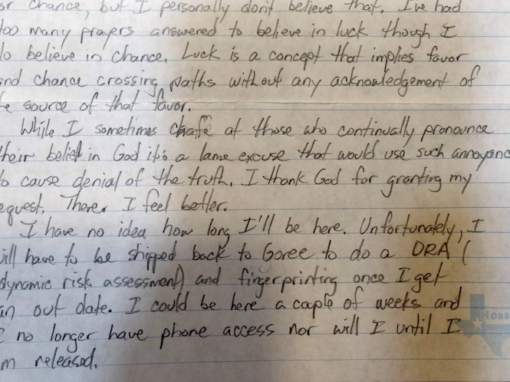 or chance, but I personally don't believe that. I've had
too many prayers answered to believe in luck though I
do believe in chance. Luck is a concept that implies favor
and chance crossing paths without any acknowledgement of
the source of that favor.
While I sometimes chafe at those who continually pronounce
their belief in God it's a lame excuse that would use such annoyanc
to cause denial of the truth. I thank God for granting my
request. There. I feel better.
I have no idea how long I'll be here. Unfortunately, I
will have to be shipped back to Goree to do a DRA (
dynamic risk assessment) and fingerprinting once I get
an out date. I could be here a couple of weeks and
I no longer have phone access nor will I until I
am released.